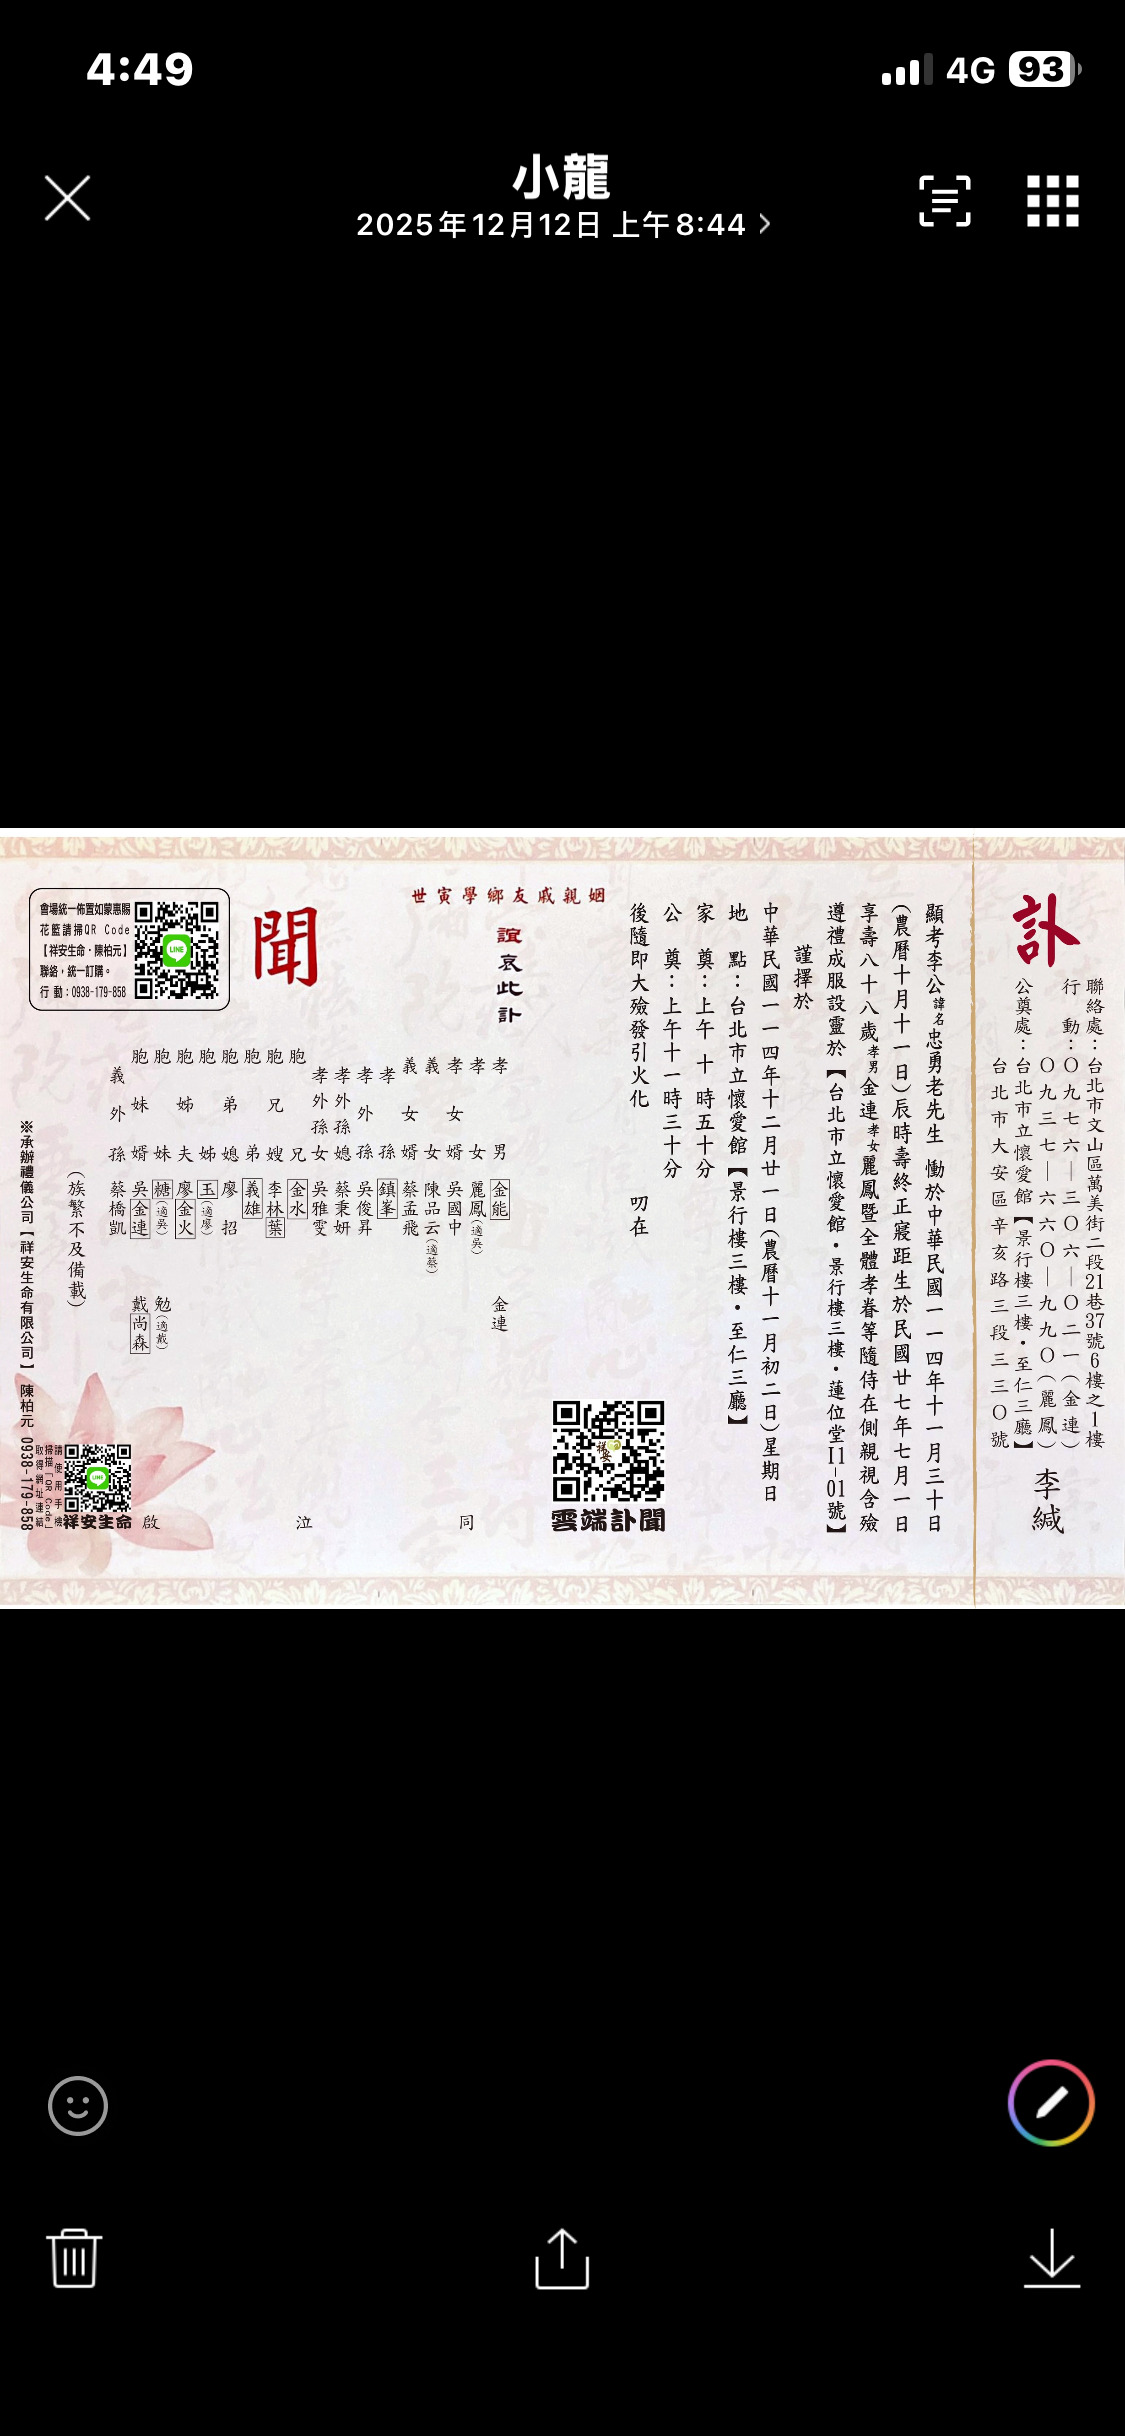 4:49
4G
93
小龍
2025年12月12日 上午8:44
訃
聯絡處：台北市文山區萬美街二段21巷37號6樓之1樓
行動：〇九七六—三〇六—〇二一（金連）
〇九三七—六六〇—九九〇（麗鳳）
公奠處：台北市立懷愛館【景行樓三樓・至仁三廳】
台北市大安區辛亥路三段三三〇號
李緘
顯考李公諱名忠勇老先生 慟於中華民國一一四年十一月三十日
（農曆十月十一日）辰時壽終正寢距生於民國廿七年七月一日
享壽八十八歲孝男金連孝女麗鳳暨全體孝眷等隨侍在側親視含殮
遵禮成服設靈於【台北市立懷愛館・景行樓三樓・蓮位堂I1-01號】
謹擇於
中華民國一一四年十二月廿一日（農曆十一月初二日）星期日
地點：台北市立懷愛館【景行樓三樓・至仁三廳】
家奠：上午十時五十分
公奠：上午十一時三十分
後隨即大殮發引火化 叨在
姻親戚友鄉學寅世
誼哀此訃
雲端訃聞
聞
孝男 金能 金連
孝女 麗鳳（適吳）
孝女婿 吳國中
義女 陳品云（適蔡）
義女婿 蔡孟飛
孝孫 鎮峯
孝外孫 吳俊昇
孝外孫媳 蔡秉妍
孝外孫女 吳雅雯
胞兄 金水
胞兄嫂 李林葉
胞弟 義雄
胞弟媳 廖招
胞姊 玉（適廖）
胞姊夫 廖金火
胞妹 糖（適吳） 勉（適戴）
胞妹婿 吳金連 戴尚森
義外孫 蔡橋凱
（族繁不及備載）
同泣啟
會場統一佈置如蒙惠賜
花籃請掃QR Code
【祥安生命・陳柏元】
聯絡，統一訂購。
行動：0938-179-858
LINE
※承辦禮儀公司【祥安生命有限公司】陳柏元 0938-179-858
請使用手機
掃描「QR Code」
取得網址連結
LINE
祥安生命